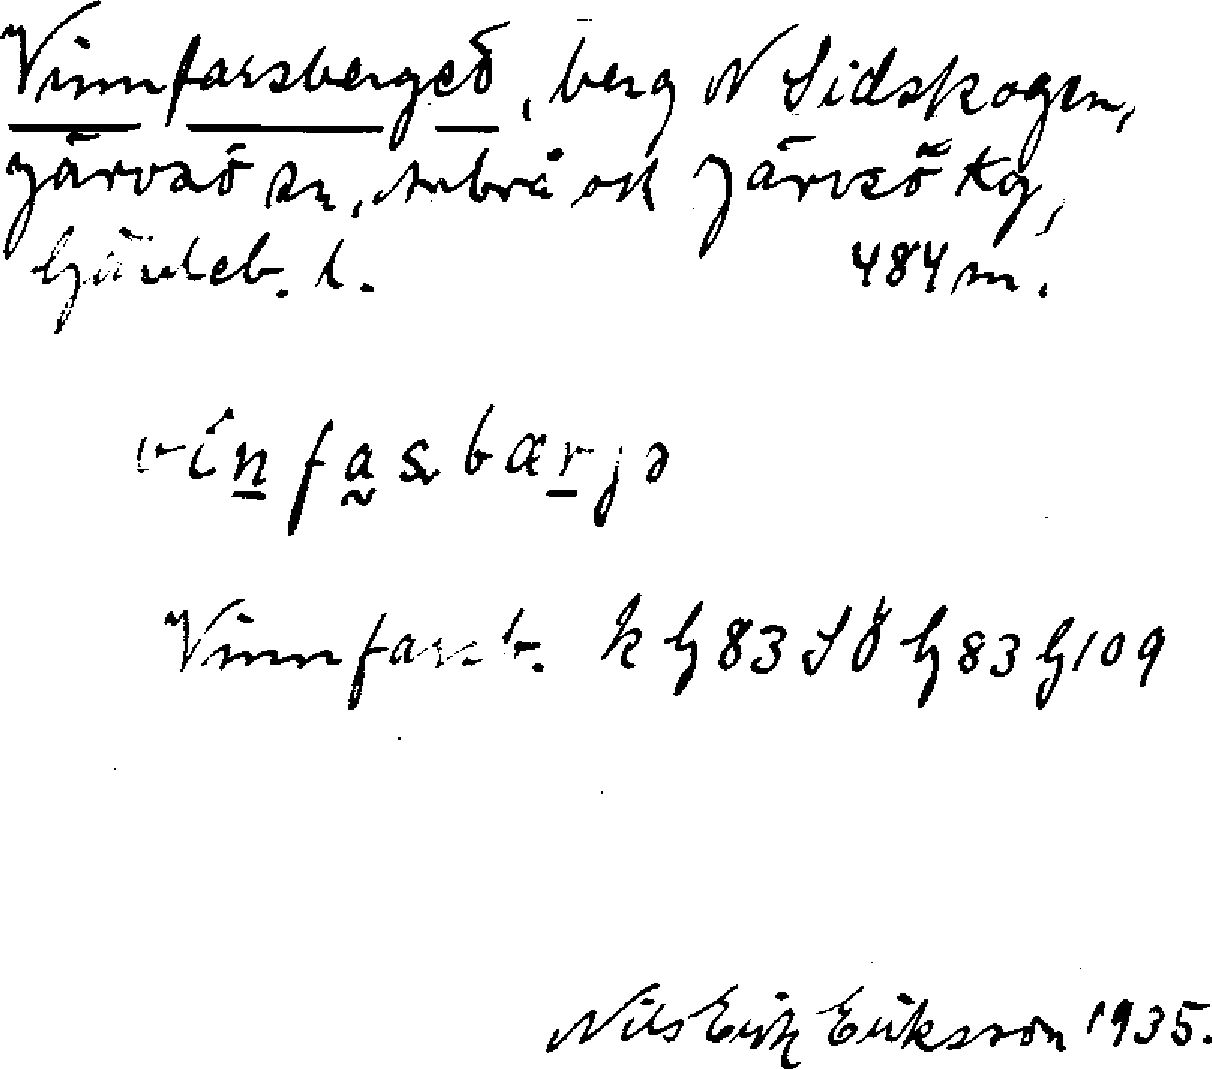 Vinnfarsberget, berg N Sidskogen,
Järvsö sn, Arbrå och Järvsö tg,
Gävleb. l. 484 m.
vinfasbærjə
Vinnfarsb. k G 83 SÖ G 83 G 109
Nils Erik Eriksson 1935.